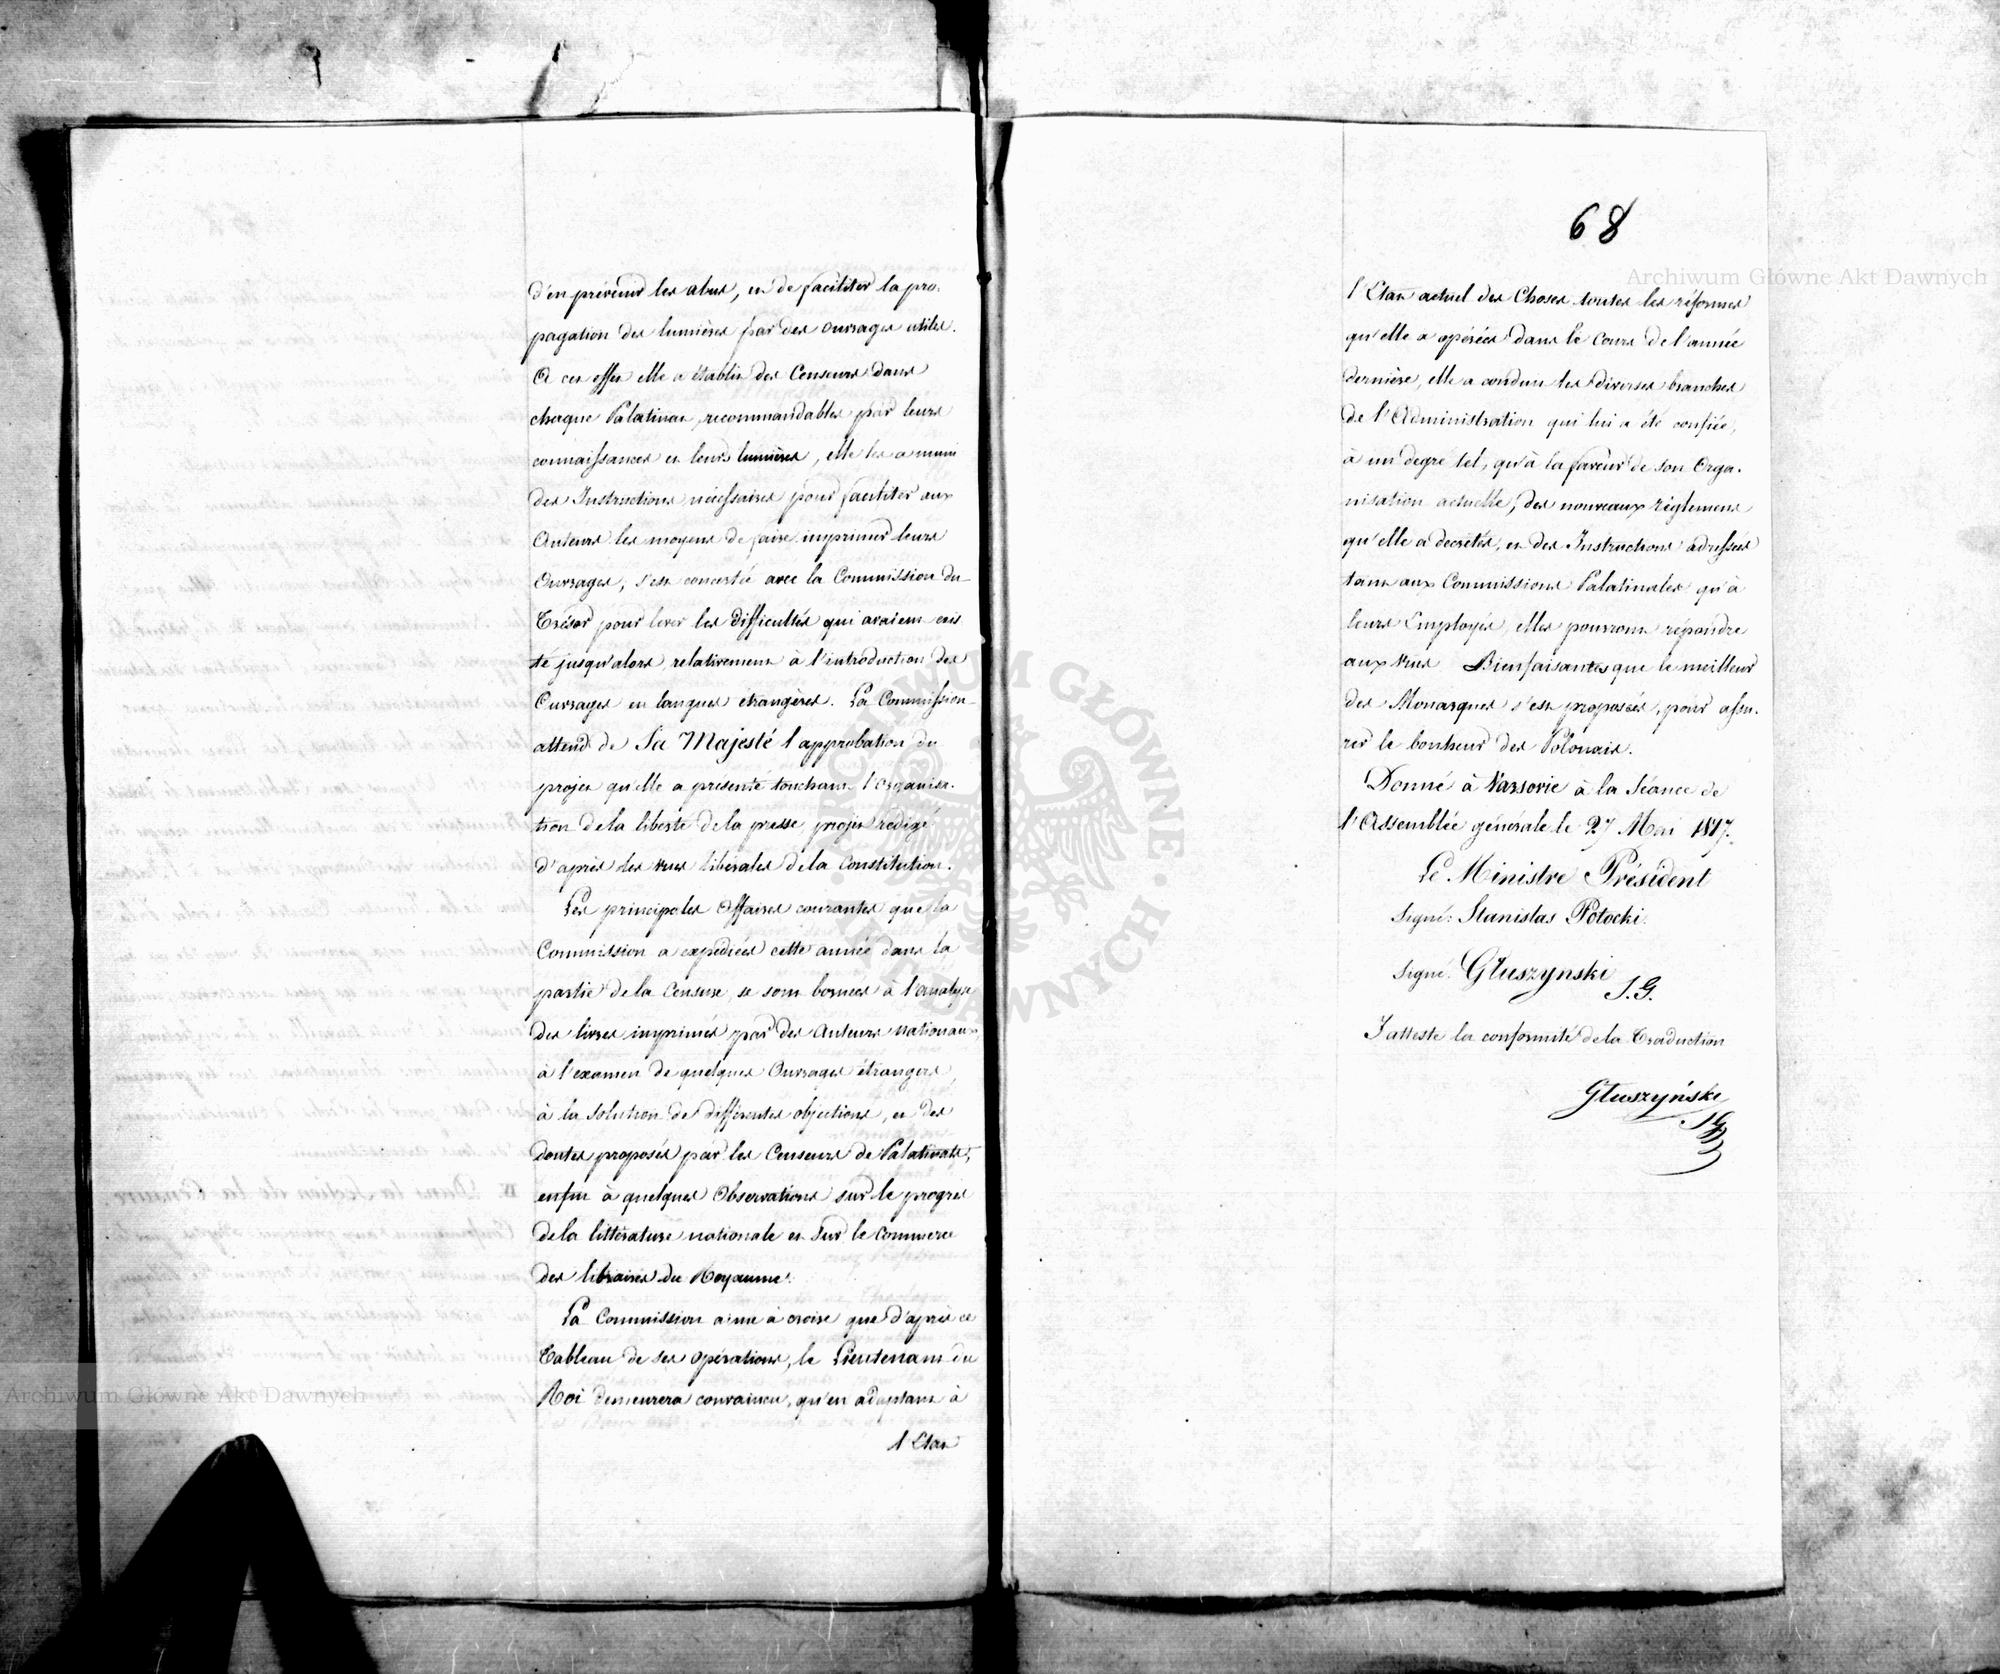 d'en prévenir les abus, et de faciliter la pro-
pagation des lumières par des ouvrages utiles.
A cet effet elle a établis des Censeurs dans
chaque Palatinat, recommandables par leurs
connaissances et leurs lumières, elle les a muni
des Instructions nécessaires pour faciliter aux
Auteurs les moyens de faire imprimer leurs
Ouvrages, s'est concertée avec la Commission du
Trésor pour lever les difficultés qui avaient exis
té jusqu'alors relativement à l'introduction des
Ouvrages en langues étrangères. La Commission
attend de Sa Majesté l'approbation du
projet qu'elle a présenté touchant l'organisa-
tion de la liberté de la presse, projet rédigé
d'après les vues libérales de la Constitution.
Les principales Affaires courantes que la
Commission a expédiées cette année dans la
partie de la Censure, se sont bornées à l'analyse
des livres imprimés par des Auteurs nationaux,
à l'examen de quelques Ouvrages étrangers,
à la solution de différentes objections, et des
doutes proposés par les Censeurs de Palatinats,
enfin à quelques Observations sur le progrès
de la littérature nationale et sur le commerce
des libraires du Royaume.
La Commission aime à croire que d'après ce
Tableau de ses opérations, le Lieutenant du
Roi demeurera convaincu, qu'en adaptant à
l'Etat
68
l'Etat actuel des Choses toutes les réformes
qu'elle a opérées dans le cours de l'année
dernière, elle a conduit les diverses branches
de l'Administration qui lui a été confiée,
à un degré tel, qu'à la faveur de son Orga-
nisation actuelle, des nouveaux règlemens
qu'elle a décrétés, et des Instructions adressées
tant aux Commissions Palatinales qu'à
leurs Employés, elles pourront répondre
aux vues Bienfaisantes que le meilleur
des Monarques s'est proposées, pour assu-
rer le bonheur des Polonais.
Donné à Varsovie à la Séance de
l'Assemblée générale le 27 Mai 1817.
Le Ministre Président
Signé: Stanislas Potocki.
Signé: Głuszynski
S. G.
J'atteste la conformité de la Traduction
Głuszyński
SG
Archiwum Główne Akt Dawnych
Archiwum Główne Akt Dawnych
ARCHIWUM GŁÓWNE · AKT DAWNYCH ·